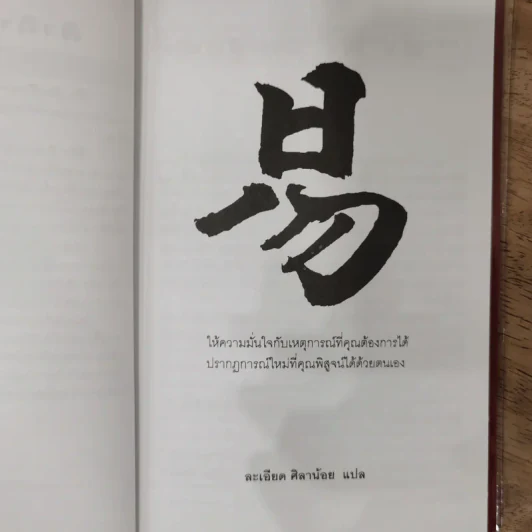 易
ให้ความมั่นใจกับเหตุการณ์ที่คุณต้องการได้
ปรากฏการณ์ใหม่ที่คุณพิสูจน์ได้ด้วยตนเอง
ละเอียด ศิลาน้อย แปล